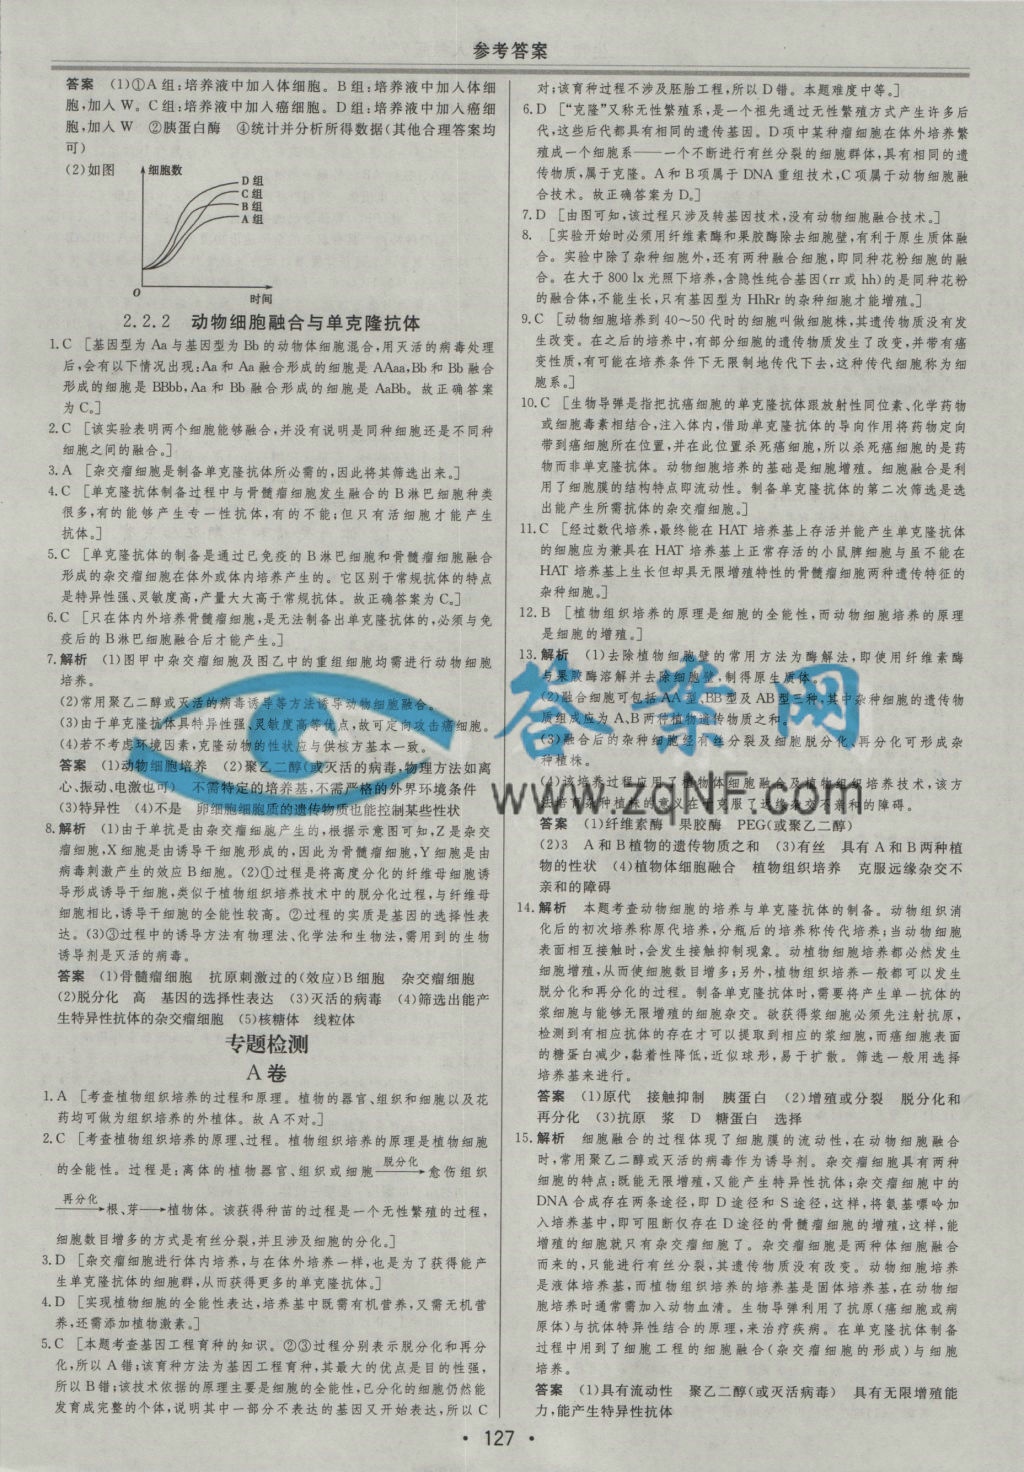 参考答案
答案　(1)①A 组:培养液中加入体细胞。B 组:培养液中加入体细
胞,加入 W。C 组:培养液中加入癌细胞。D 组:培养液中加入癌细
胞,加入 W　②胰蛋白酶　④统计并分析所得数据(其他合理答案均
可)
(2)如图
细胞数
D 组
C 组
B 组
A 组
O
时间
2.2.2　动物细胞融合与单克隆抗体
1.C　[基因型为 Aa 与基因型为 Bb 的动物体细胞混合,用灭活的病毒处理
后,会有以下情况出现:Aa 和 Aa 融合形成的细胞是 AAaa,Bb 和 Bb 融合
形成的细胞是 BBbb,Aa 和 Bb 融合形成的细胞是 AaBb。故正确答案
为 C。]
2.C　[该实验表明两个细胞能够融合,并没有说明是同种细胞还是不同种
细胞之间的融合。]
3.A　[杂交瘤细胞是制备单克隆抗体所必需的,因此将其筛选出来。]
4.C　[单克隆抗体制备过程中与骨髓瘤细胞发生融合的 B 淋巴细胞种类
很多,有的能够产生专一性抗体,有的不能;但只有活细胞才能产生
抗体。]
5.C　[单克隆抗体的制备是通过已免疫的 B 淋巴细胞和骨髓瘤细胞融合
形成的杂交瘤细胞在体外或体内培养产生的。它区别于常规抗体的特点
是特异性强、灵敏度高,产量大大高于常规抗体。故正确答案为 C。]
6.C　[只在体内外培养骨髓瘤细胞,是无法制备出单克隆抗体的,必须与免
疫后的 B 淋巴细胞融合后才能产生。]
7.解析　(1)图甲中杂交瘤细胞及图乙中的重组细胞均需进行动物细胞
培养。
(2)常用聚乙二醇或灭活的病毒诱导等方法诱导动物细胞融合。
(3)由于单克隆抗体具特异性强、灵敏度高等优点,故可定向攻击癌细胞。
(4)若不考虑环境因素,克隆动物的性状应与供核方基本一致。
答案　(1)动物细胞培养　(2)聚乙二醇(或灭活的病毒,物理方法如离
心、振动、电激也可)　不需特定的培养基,不需严格的外界环境条件
(3)特异性　(4)不是　卵细胞细胞质的遗传物质也能控制某些性状
8.解析　(1)由于单抗是由杂交瘤细胞产生的,根据示意图可知,Z 是杂交
瘤细胞,X 细胞是由诱导干细胞形成的,因此为骨髓瘤细胞,Y 细胞是由
病毒刺激产生的效应 B 细胞。(2)①过程是将高度分化的纤维母细胞诱
导形成诱导干细胞,类似于植物组织培养技术中的脱分化过程,与纤维母
细胞相比,诱导干细胞的全能性较高。②过程的实质是基因的选择性表
达。(3)③过程中的诱导方法有物理法、化学法和生物法,需用到的生物
诱导剂是灭活的病毒。
答案　(1)骨髓瘤细胞　抗原刺激过的(效应)B 细胞　杂交瘤细胞
(2)脱分化　高　基因的选择性表达　(3)灭活的病毒　(4)筛选出能产
生特异性抗体的杂交瘤细胞　(5)核糖体　线粒体
专题检测
A 卷
1.A　[考查植物组织培养的过程和原理。植物的器官、组织和细胞以及花
药均可做为组织培养的外植体。故 A 不对。]
2.C　[考查植物组织培养的原理、过程。植物组织培养的原理是植物细胞
的全能性。过程是:离体的植物器官、组织或细胞脱分化→愈伤组织
再分化→根、芽→植物体。该获得种苗的过程是一个无性繁殖的过程,
细胞数目增多的方式是有丝分裂,并且涉及细胞的分化。]
3.D　[杂交瘤细胞进行体内培养,与在体外培养一样,也是为了获得能产
生单克隆抗体的细胞群,从而获得更多的单克隆抗体。]
4.D　[实现植物细胞的全能性表达,培养基中既需有机营养,又需无机营
养,还需添加植物激素。]
5.C　[本题考查基因工程育种的知识。②③过程分别表示脱分化和再分
化,所以 A 错;该育种方法为基因工程育种,其最大的优点是目的性强,
所以 B 错;该技术依据的原理主要是细胞的全能性,已分化的细胞仍然能
发育成完整的个体,说明其中一部分不表达的基因又开始表达,所以 C
对;该育种过程不涉及胚胎工程,所以 D 错。本题难度中等。]
6.D　[“克隆”又称无性繁殖系,是一个祖先通过无性繁殖方式产生许多后
代,这些后代都具有相同的遗传基因。D 项中某种瘤细胞在体外培养繁
殖成一个细胞系——一个不断进行有丝分裂的细胞群体,具有相同的遗
传物质,属于克隆。A 和 B 项属于 DNA 重组技术,C 项属于动物细胞融
合技术。故正确答案为 D。]
7.D　[由图可知,该过程只涉及转基因技术,没有动物细胞融合技术。]
8.　[实验开始时必须用纤维素酶和果胶酶除去细胞壁,有利于原生质体融
合。实验中除了杂种细胞外,还有两种融合细胞,即同种花粉细胞的融
合。在大于 800 lx 光照下培养,含隐性纯合基因(rr 或 hh)的是同种花粉
的融合体,不能生长,只有基因型为 HhRr 的杂种细胞才能增殖。]
9.C　[动物细胞培养到 40～50 代时的细胞叫做细胞株,其遗传物质没有发
生改变。在之后的培养中,有部分细胞的遗传物质发生了改变,并带有癌
变性质,有可能在培养条件下无限制地传代下去,这种传代细胞称为细
胞系。]
10.C　[生物导弹是指把抗癌细胞的单克隆抗体跟放射性同位素、化学药物
或细胞毒素相结合,注入体内,借助单克隆抗体的导向作用将药物定向
带到癌细胞所在位置,并在此位置杀死癌细胞,所以杀死癌细胞的是药
物而非单克隆抗体。动物细胞培养的基础是细胞增殖。细胞融合是利
用了细胞膜的结构特点即流动性。制备单克隆抗体的第二次筛选是选
出能产生所需抗体的杂交瘤细胞。]
11.C　[经过数代培养,最终能在 HAT 培养基上存活并能产生单克隆抗体
的细胞应为兼具在 HAT 培养基上正常存活的小鼠脾细胞与虽不能在
HAT 培养基上生长但却具无限增殖特性的骨髓瘤细胞两种遗传特征的
杂种细胞。]
12.B　[植物组织培养的原理是细胞的全能性,而动物细胞培养的原理
是细胞的增殖。]
13.解析　(1)去除植物细胞壁的常用方法为酶解法,即使用纤维素酶
与果胶酶溶解并去除细胞壁,制得原生质体。
(2)融合细胞可包括 AA 型、BB 型及 AB 型三种,其中杂种细胞的遗传物
质组成应为 A、B 两种植物遗传物质之和。
(3)融合后的杂种细胞经有丝分裂及细胞脱分化、再分化可形成杂
种植株。
(4)该培养过程应用了植物体细胞融合及植物组织培养技术,该方
法培育杂种植株的意义在于克服了远缘杂交不亲和的障碍。
答案　(1)纤维素酶　果胶酶　PEG(或聚乙二醇)
(2)3　A 和 B 植物的遗传物质之和　(3)有丝　具有 A 和 B 两种植
物的性状　(4)植物体细胞融合　植物组织培养　克服远缘杂交不
亲和的障碍
14.解析　本题考查动物细胞的培养与单克隆抗体的制备。动物组织消
化后的初次培养称原代培养,分瓶后的培养称传代培养;当动物细胞
表面相互接触时,会发生接触抑制现象。动植物细胞培养都必然发生
细胞增殖,从而使细胞数目增多;另外,植物组织培养一般都可以发生
脱分化和再分化的过程。制备单克隆抗体时,需要将产生单一抗体的
浆细胞与能够无限增殖的细胞杂交。欲获得浆细胞必须先注射抗原,
检测到有相应抗体的存在才可以提取到相应的浆细胞,而癌细胞表面
的糖蛋白减少,黏着性降低,近似球形,易于扩散。筛选一般用选择
培养基来进行。
答案　(1)原代　接触抑制　胰蛋白　(2)增殖或分裂　脱分化和
再分化　(3)抗原　浆　D　糖蛋白　选择
15.解析　细胞融合的过程体现了细胞膜的流动性,在动物细胞融合
时,常用聚乙二醇或灭活的病毒作为诱导剂。杂交瘤细胞具有两种
细胞的特点:既能无限增殖,又能产生特异性抗体;杂交瘤细胞中的
DNA 合成存在两条途径,即 D 途径和 S 途径,这样,将氨基嘌呤加
入培养基中,即可阻断仅存在 D 途径的骨髓瘤细胞的增殖,这样,能
增殖的细胞就只有杂交瘤细胞了。杂交瘤细胞是两种体细胞融合
而来的,只能进行有丝分裂,其遗传物质没有改变。动物细胞培养
是液体培养基,而植物组织培养的培养基是固体培养基,在动物细
胞培养时通常需加入动物血清。生物导弹利用了抗原(癌细胞或病
原体)与抗体特异性结合的原理,来治疗疾病。在单克隆抗体制备
过程中用到了细胞工程的细胞融合(杂交瘤细胞的形成)与细胞
培养。
答案　(1)具有流动性　聚乙二醇(或灭活病毒)　具有无限增殖能
力,能产生特异性抗体
答案网
www.zqNF.com
• 127 •